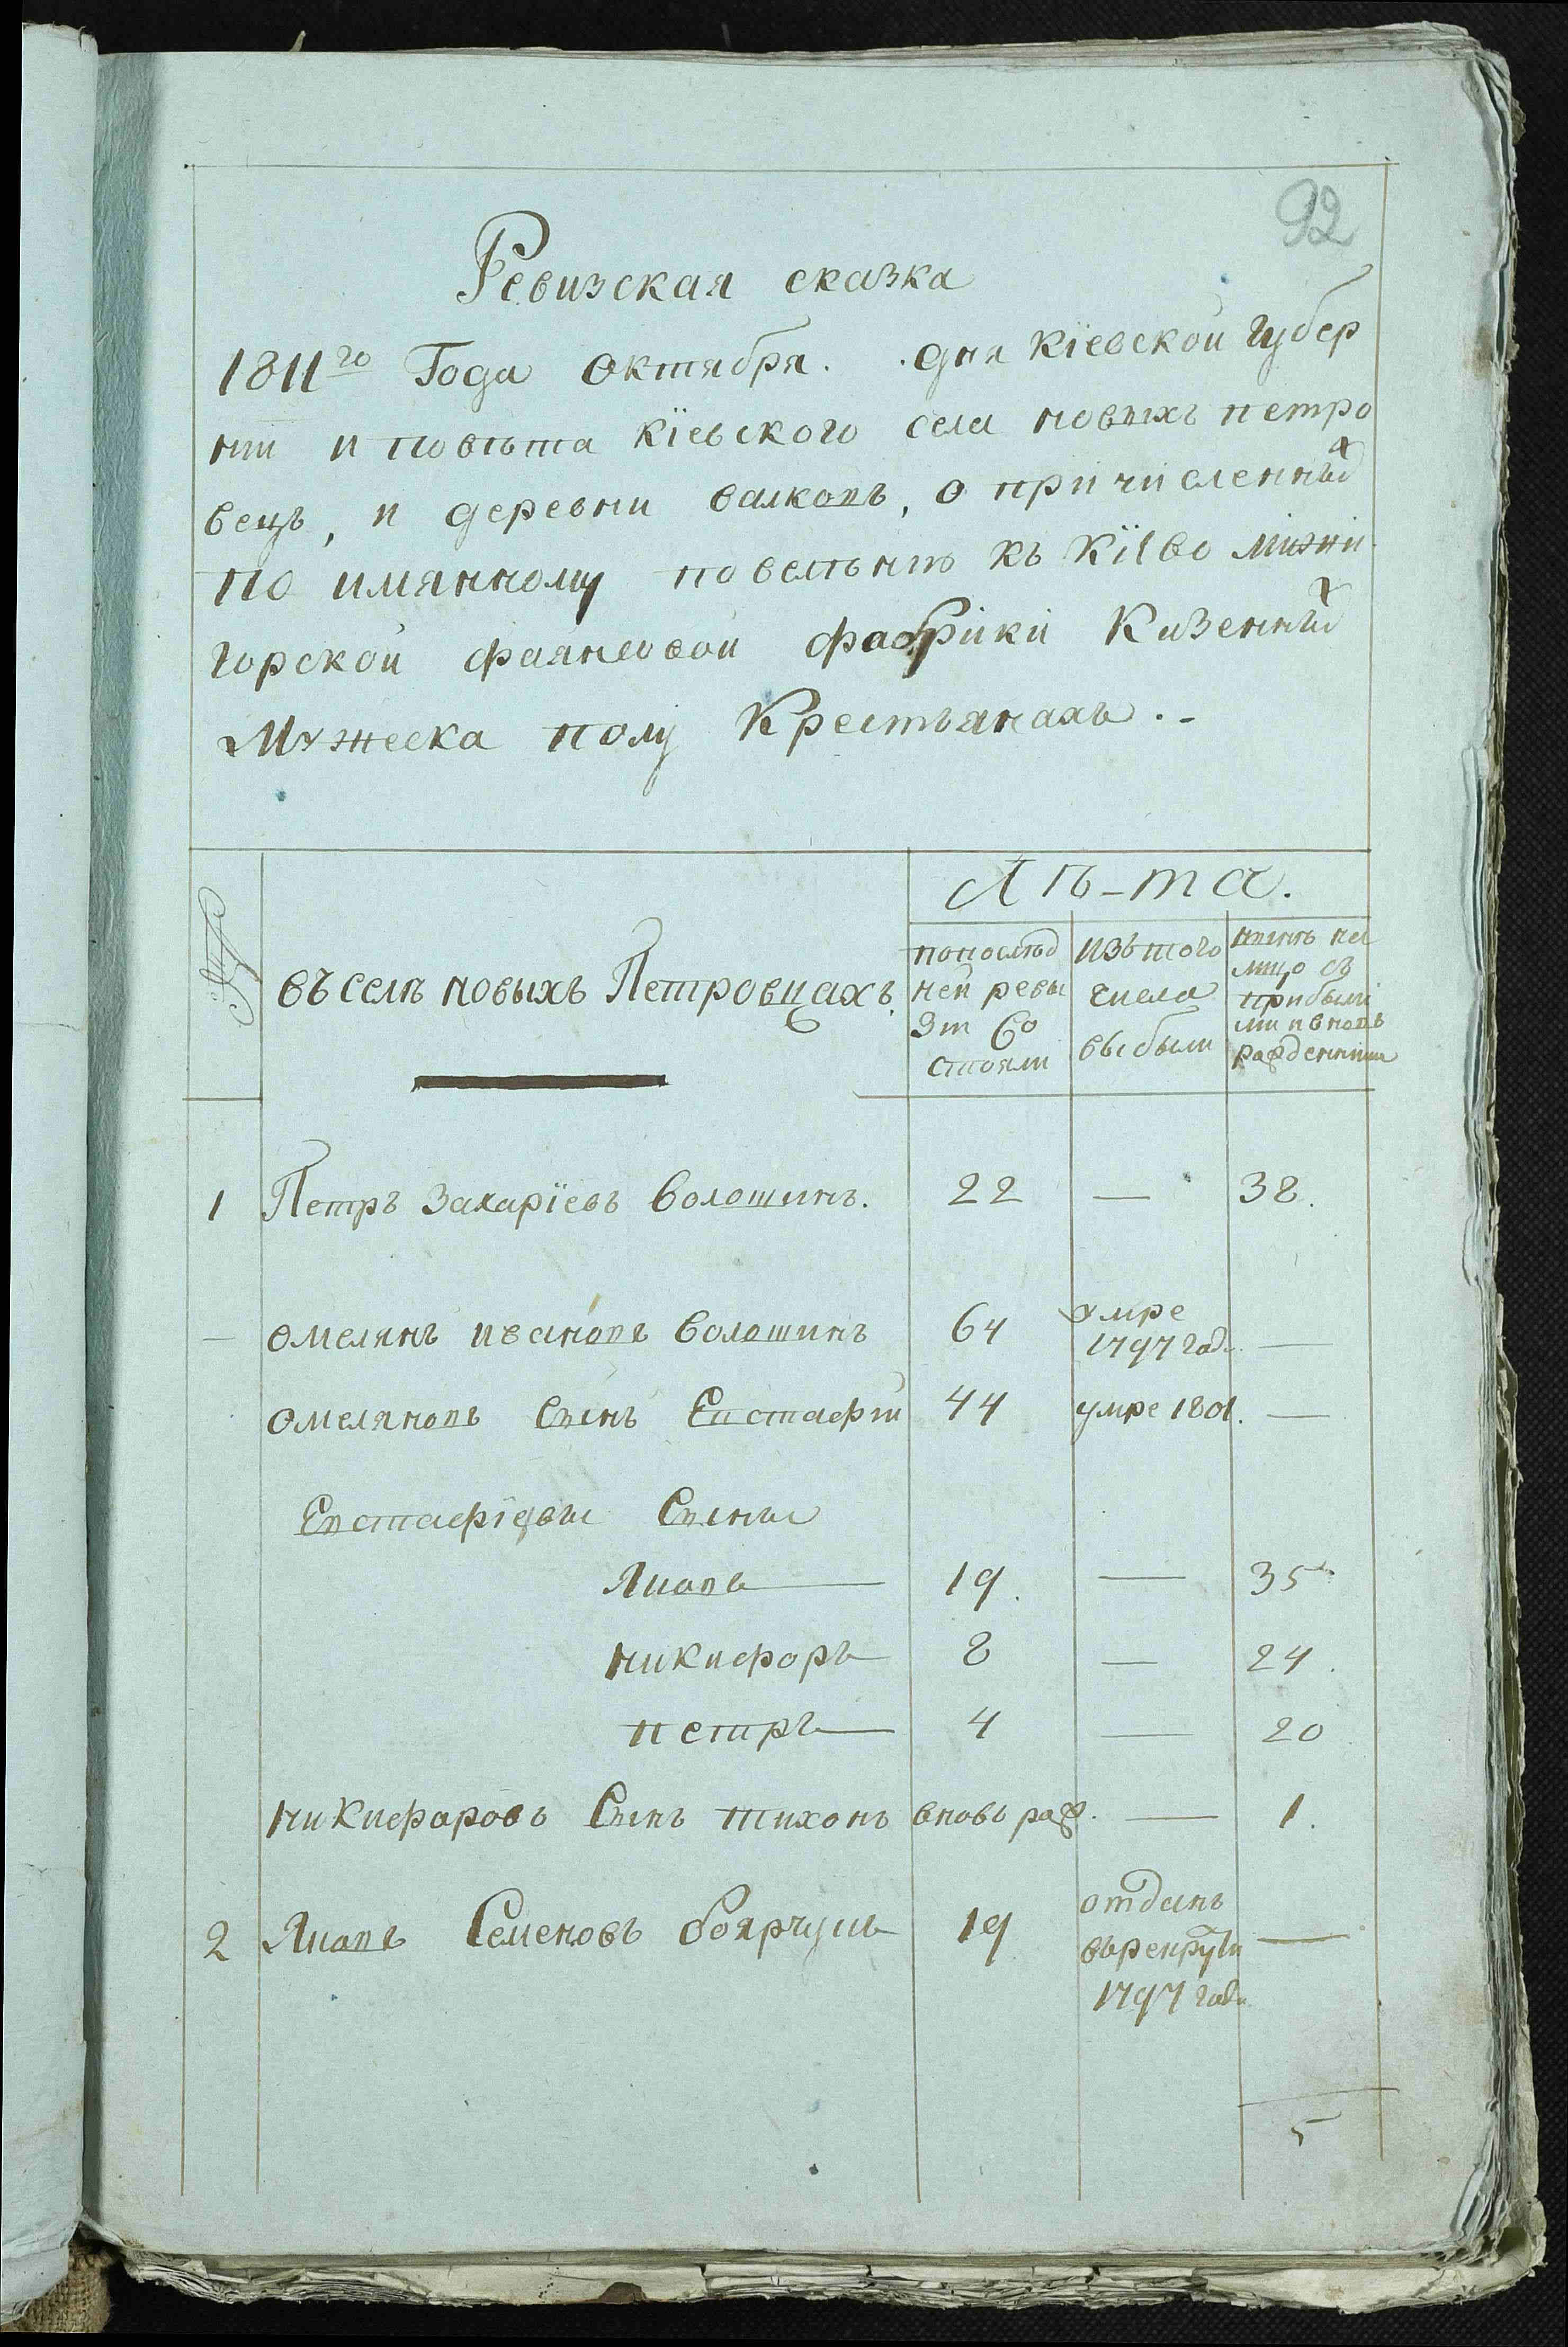 92
Ревизская сказка
1811го Года октября. дня Кіевской губер
ніи и повѣта Кіевского села новыхъ петро
вецъ, и деревни валковъ, о причисленныхъ
по имянному повелѣнію къ Кіево межи
горской фаянсовой фабрики Казенныхъ
Мужеска полу Крестьянахъ.-
№ въ селѣ новыхъ Петровцахъ. Лѣ-та.
попослѣд
ней ревы
зіи Со
стояли
изътого
числа
выбыли
нынѣ на
лицо съ
прибылы
ми ивновь
рожденными
1 Петръ Захаріевъ Волошинъ. 22 — 38.
— омелянъ ивановъ Волошинъ 64 умре 1797 год. —
омеляновъ Сынъ Евстафій 44 умре 1801. —
Евстафіевы Сыны
Яковъ 19. — 35
никифоръ 8 — 24.
петръ 4 — 20
никифоровъ Сынъ тихонъ вновь рож. — 1.
2 Яковъ Семеновъ боярчукъ 19 отданъ —
въ рекруты
1797 года
5